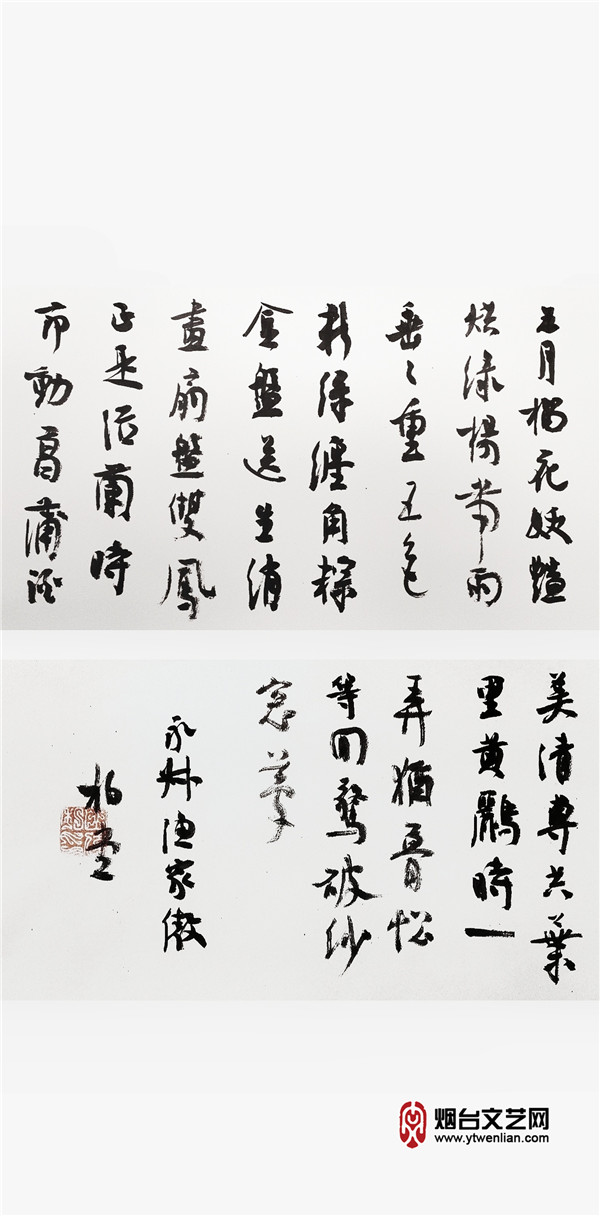 五月榴花妖艷
烘綠楊帶雨
垂〻重五色
新絲纏角糉
金盤送生綃
畫扇盤雙鳳
正是浴蘭時
節動菖蒲酒
美清尊共葉
里黄鸝時一
弄猶瞢忪
等閒驚破紗
窓夢
永叔漁家傲
烟台文艺网
www.ytwenlian.com